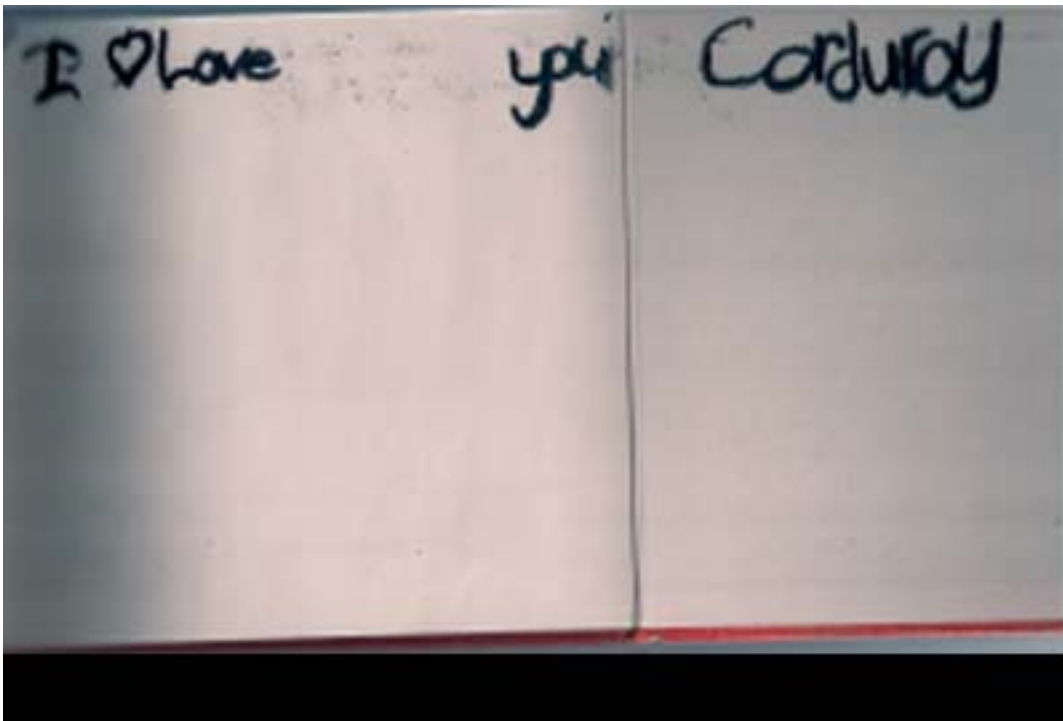 I ♡ Love you Corduroy